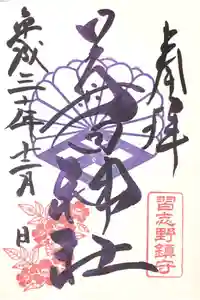 奉拝
神社
習志野鎮守
平成三十年十二月 日